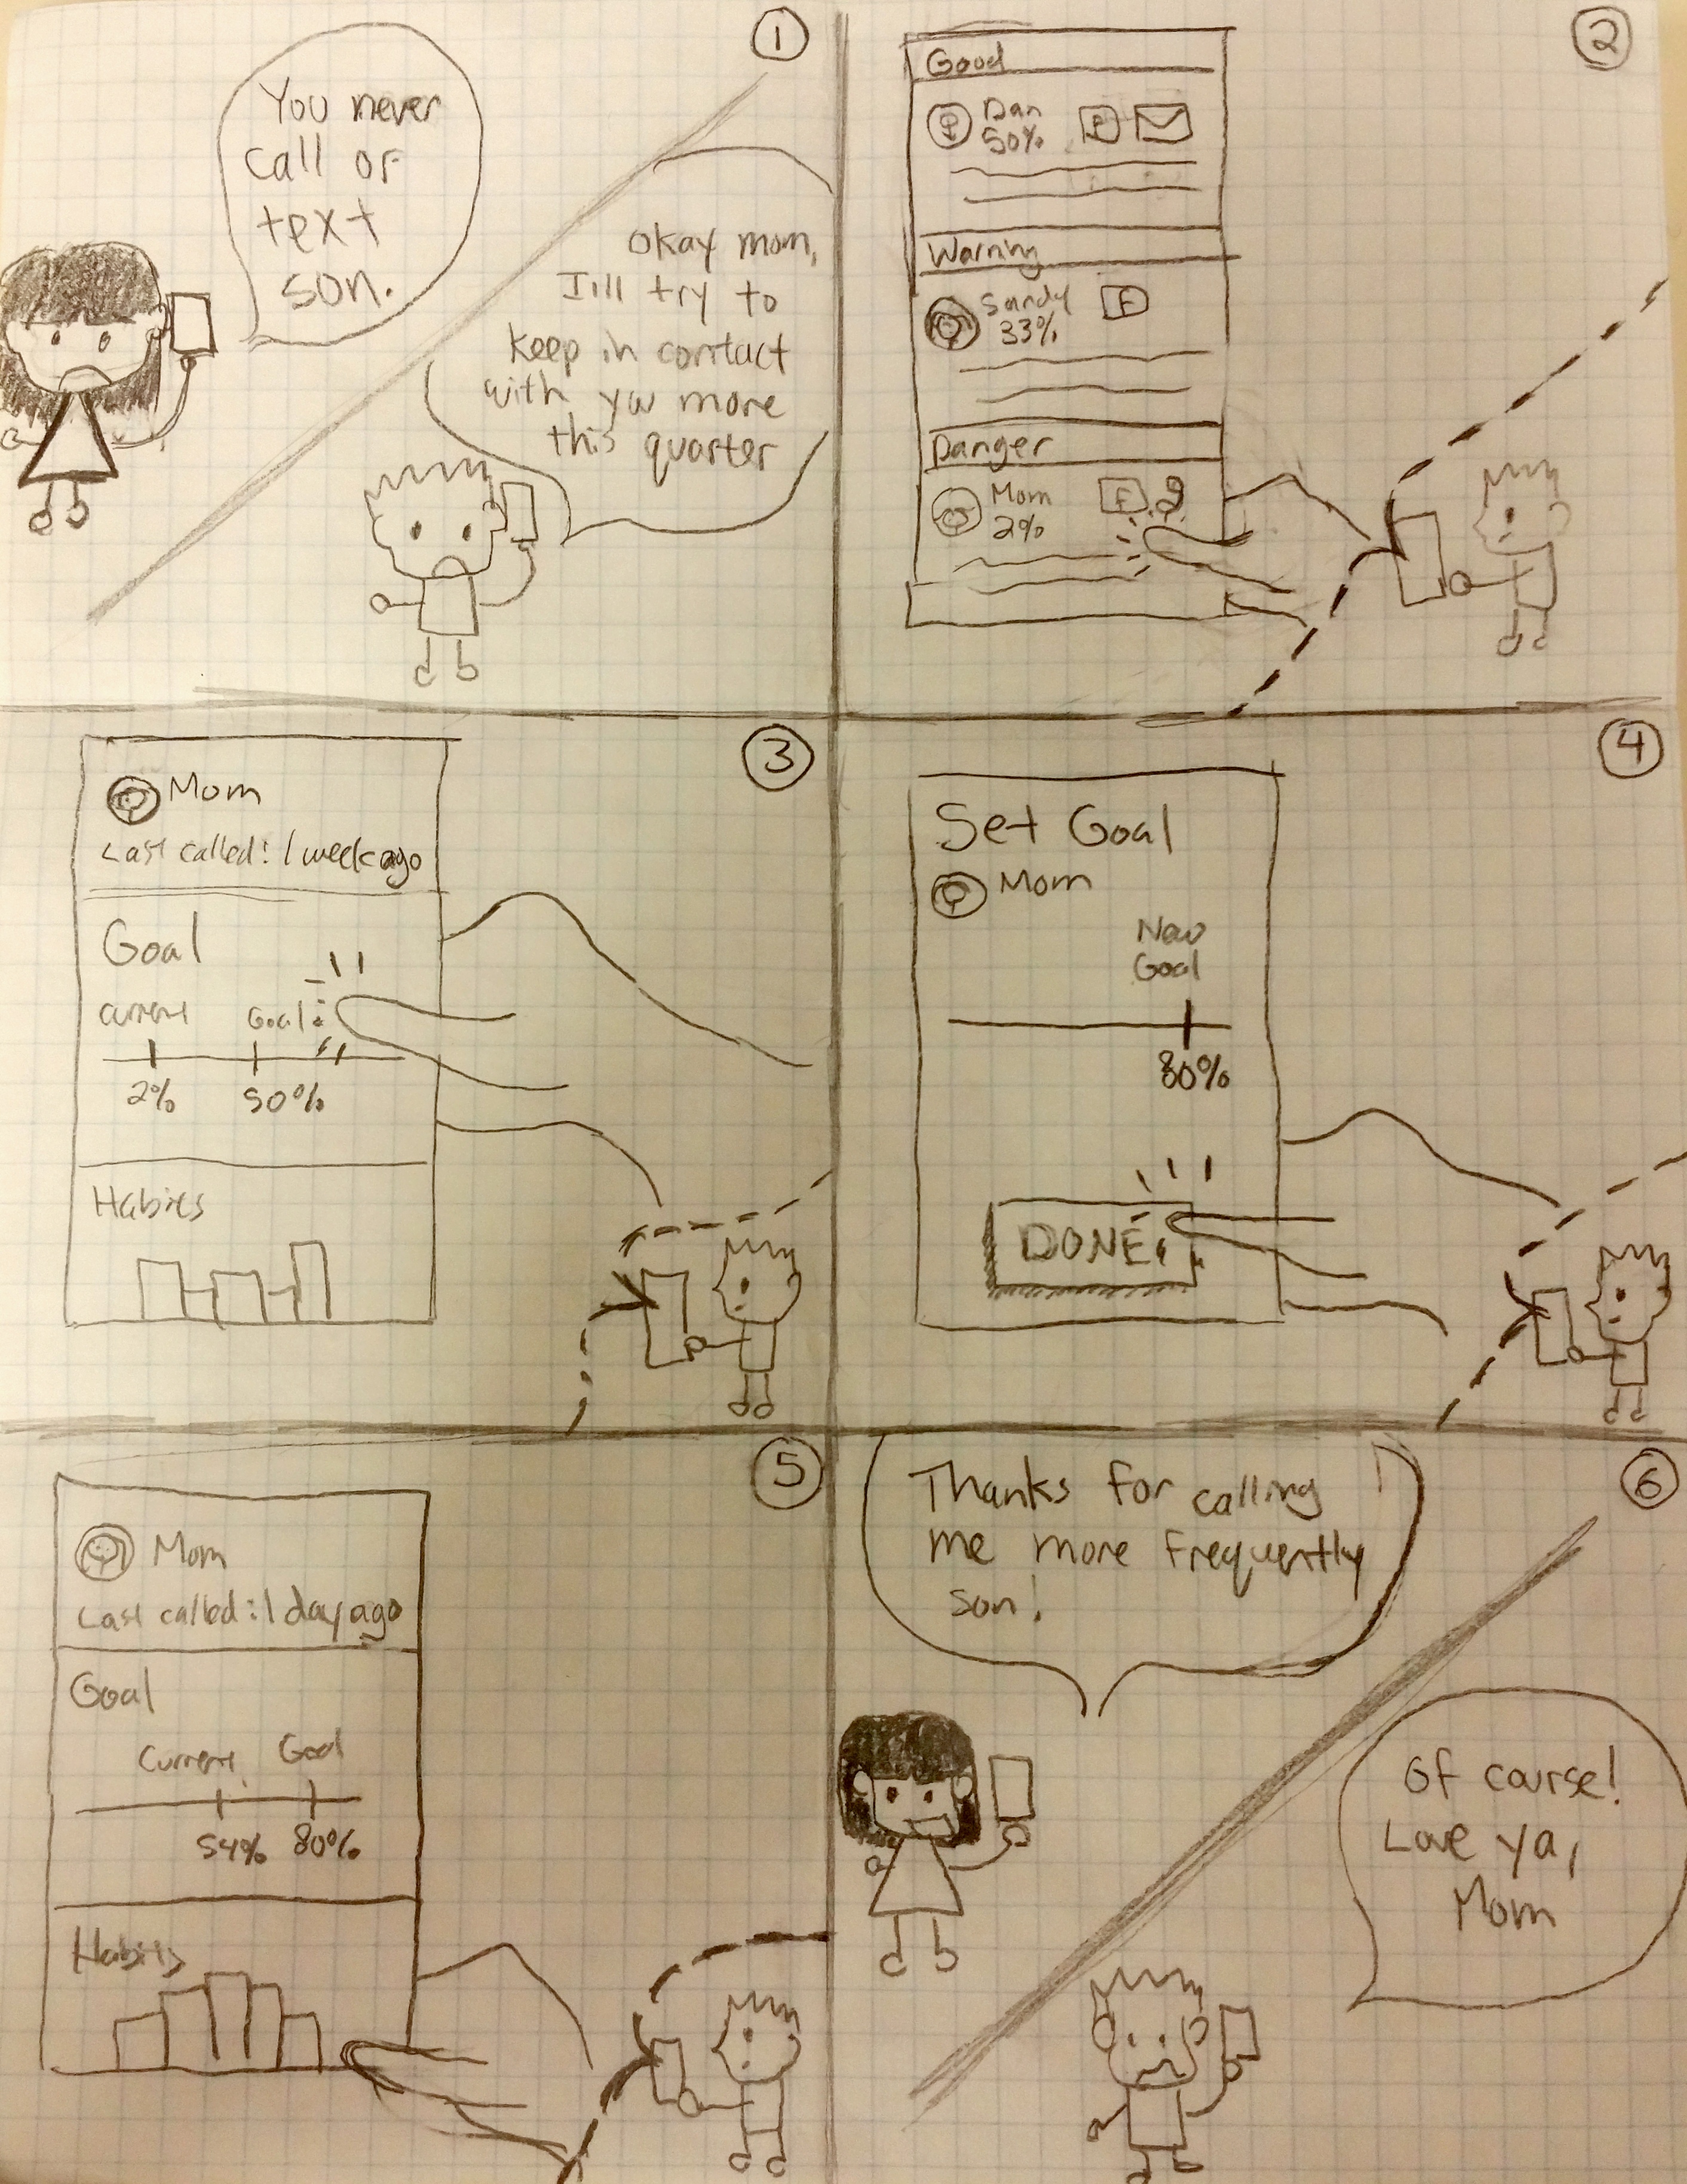 1
You never
call or
text
son.
Okay mom,
I'll try to
keep in contact
with you more
this quarter
2
Good
Dan
50%
F
Warning
Sandy
33%
F
Danger
Mom
2%
F
3
Mom
Last called: 1 week ago
Goal
Current Goal
2% 50%
Habits
4
Set Goal
Mom
New
Goal
80%
DONE
5
Mom
Last called: 1 day ago
Goal
Current Goal
54% 80%
Habits
6
Thanks for calling
me more frequently
son!
Of course!
Love ya,
Mom